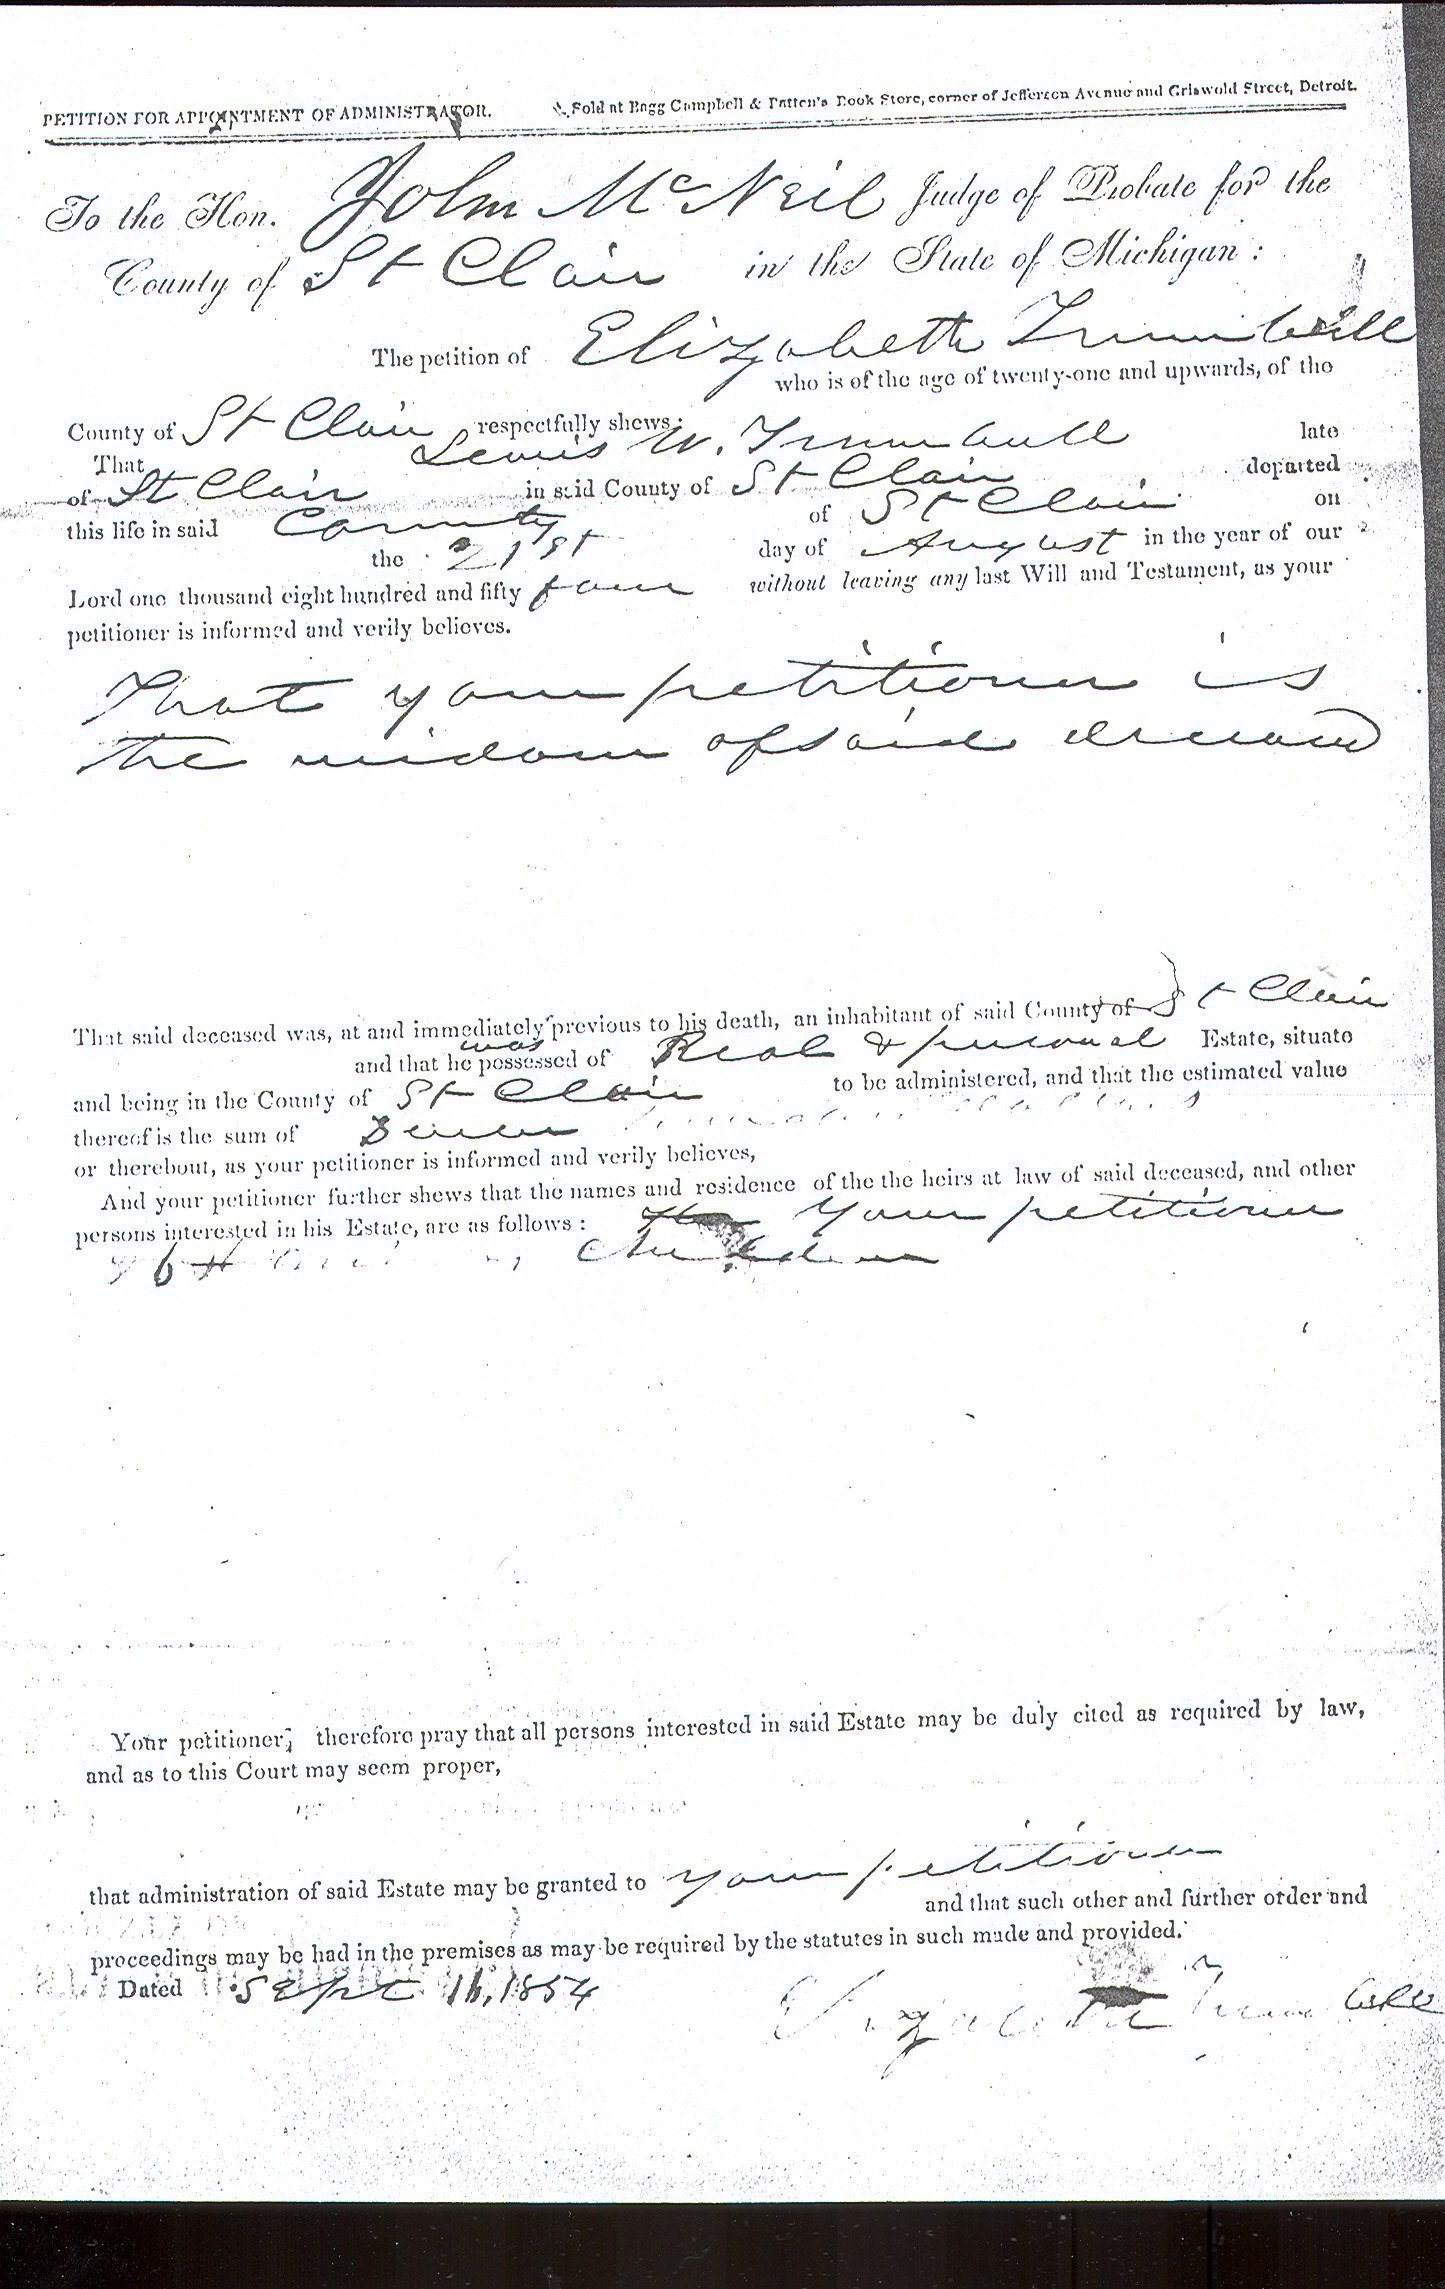 PETITION FOR APPOINTMENT OF ADMINISTRATOR. Sold at Bagg Campbell & Patten's Book Store, corner of Jefferson Avenue and Griswold Street, Detroit.
To the Hon. John McNeil Judge of Probate for the
County of St Clair in the State of Michigan:
The petition of Elizabeth Trumbull
who is of the age of twenty-one and upwards, of the
County of St Clair respectfully shews:
That Lewis W. Trumbull late
of St Clair in said County of St Clair departed
this life in said County of St Clair on
the 21st day of August in the year of our
Lord one thousand eight hundred and fifty four without leaving any last Will and Testament, as your
petitioner is informed and verily believes.
That your petitioner is
the widow of said deceased
That said deceased was, at and immediately previous to his death, an inhabitant of said County of St Clair
and that he was possessed of Real & personal Estate, situate
and being in the County of St Clair to be administered, and that the estimated value
thereof is the sum of Seven
or therebout, as your petitioner is informed and verily believes,
And your petitioner further shews that the names and residence of the the heirs at law of said deceased, and other
persons interested in his Estate, are as follows: Your petitioner
children
Your petitioner, therefore pray that all persons interested in said Estate may be duly cited as required by law,
and as to this Court may seem proper,
that administration of said Estate may be granted to your petitioner
and that such other and further order and
proceedings may be had in the premises as may be required by the statutes in such made and provided.
Dated Sept 16, 1854
Elizabeth Trumbull